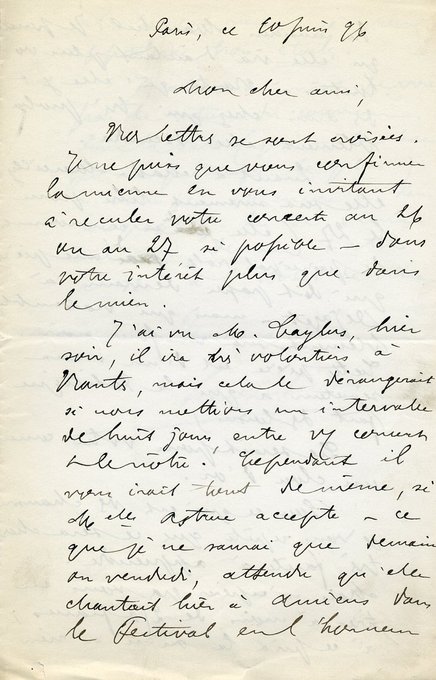 Paris, ce 10 juin 96
Mon cher ami,
Nos lettres se sont croisées.
Je ne puis que vous confirmer
la mienne en vous invitant
à reculer votre concert au 26
ou au 27 si possible – dans
votre intérêt plus que dans
le mien.
J'ai vu M. Caylus, hier
soir, il ira très volontiers à
Nantes, mais cela le dérangerait
si nous mettions un intervalle
de huit jours, entre ce concert
et le nôtre. Cependant il
irait tout de même, si
Melle accepte – ce
que je ne saurai que demain
ou vendredi, attendu qu'elle
chantait hier à Amiens dans
le Festival en l'honneur